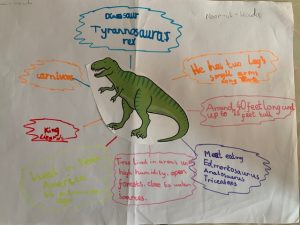 Dinosaur
Tyrannosaurus
rex
carnivore
He has two legs
small arms
long
Around 40 feet long and
up to 15 feet tall
King
Lizard
Meat eating
Edmontosaurus
Anatosaurus
Triceratops
Trex lived in areas with
high humidity, open
forests, close to water
sources.
America